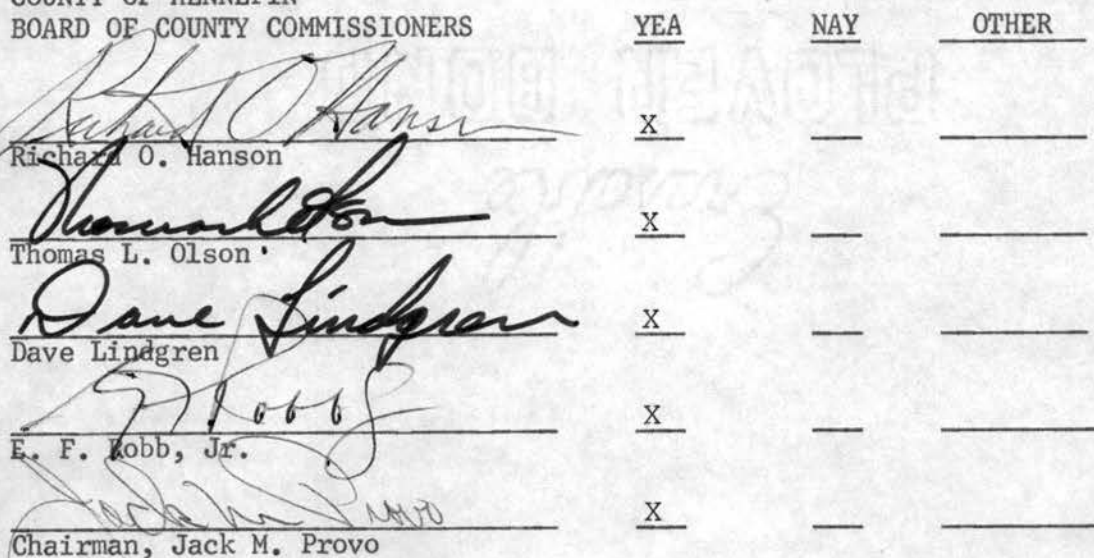 COUNTY OF HENNEPIN
BOARD OF COUNTY COMMISSIONERS YEA NAY OTHER
Richard O Hanson X
Richard O. Hanson
X
Thomas L. Olson
Dave Lindgren X
Dave Lindgren
E F Robb Jr X
E. F. Robb, Jr.
Jack M Provo X
Chairman, Jack M. Provo